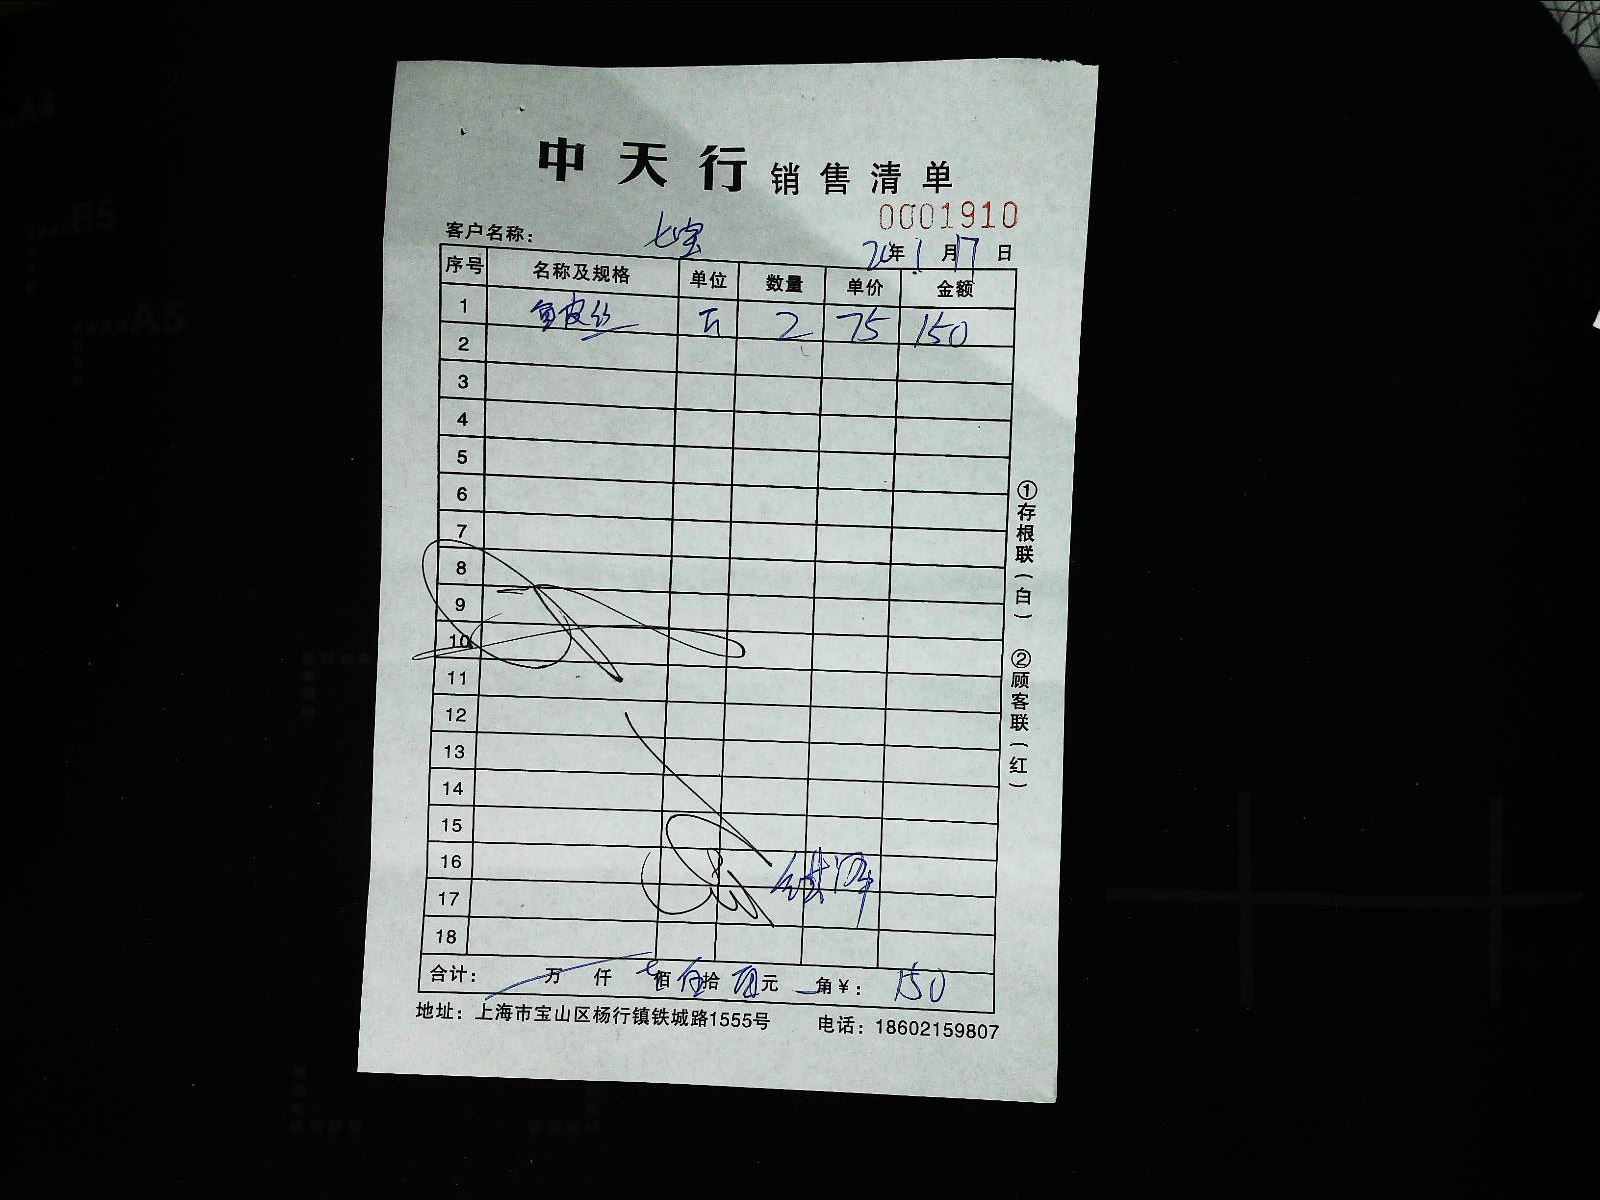 中天行销售清单
0001910
客户名称： 七宝
20年1月17日
序号 名称及规格 单位 数量 单价 金额
1 鱼皮丝 2 75 150
2
3
4
5
6
7
8
9
10
11
12
13
14
15
16
17
18
合计： 万 仟 佰 拾 元 角￥： 150
地址：上海市宝山区杨行镇铁城路1555号 电话：18602159807
①存根联（白） ②顾客联（红）